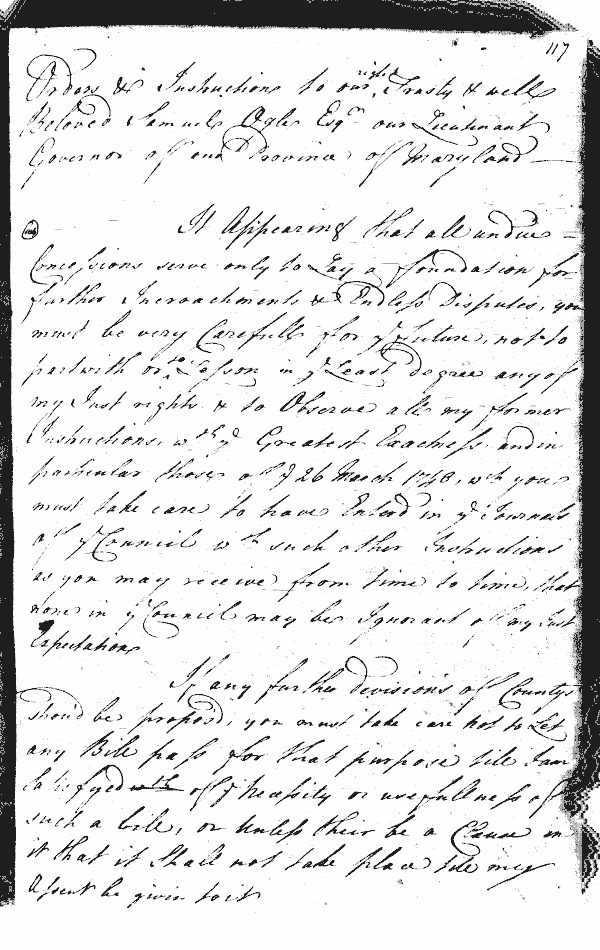 117
Orders & Instructions to our right Trusty & well
Beloved Samuel Ogle Esqr our Lieutenant
Governor of our Province of Maryland
It Appearing that all undue
Concessions serve only to Lay a foundation for
further Incroachments & Endless Disputes, you
must be very Carefull for ye future, not to
part with or to Lesson in ye Least degree any of
my Just rights & to Observe all my former
Instructions, wth ye Greatest Exactness and in
particular those of ye 26 March 1748, wch you
must take care to have Enterd in ye Journals
of ye Council wth such other Instructions
as you may receive from time to time, that
none in ye Council may be Ignorant of my Just
Expectations
If any further divisions of Countys
Shoud be proposd, you must take care not to Let
any Bill pass for that purpose till I am
Satisfyed wth of ye Necessity or usefullness of
such a bill, or unless their be a Clause in
it that it Shall not take place till my
Assent be given to it